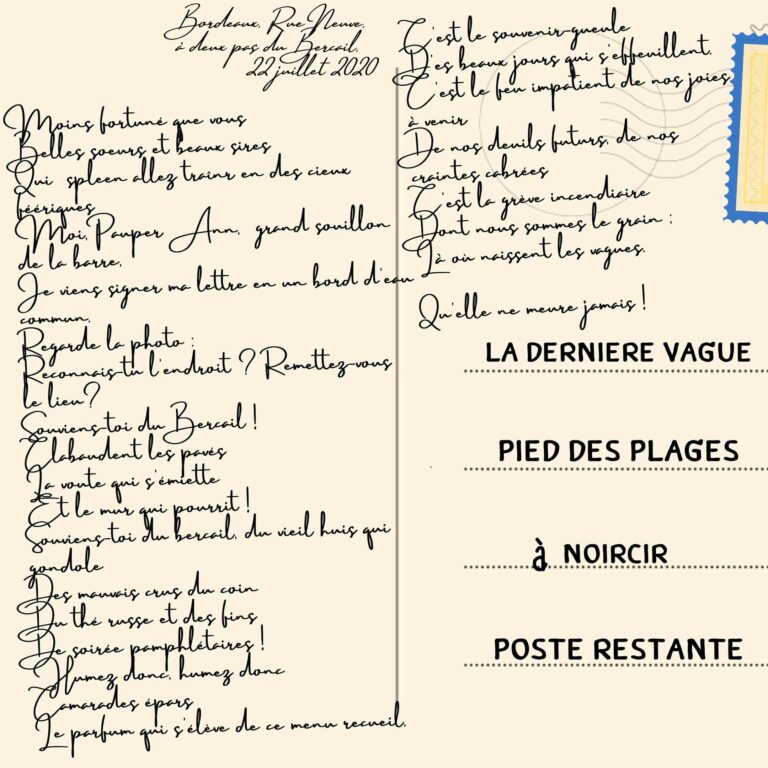 Bordeaux, Rue Neuve,
à deux pas du Bercail,
22 juillet 2020
Moins fortuné que vous
Belles soeurs et beaux sires
Qui spleen allez trainr en des cieux
féériques
Moi, Pauper Ann, grand souillon
de la barre,
Je viens signer ma lettre en un bord d'eau
commun.
Regarde la photo :
Reconnais-tu l'endroit ? Remettez-vous
le lieu?
Souviens-toi du Bercail !
Clabaudent les pavés
La voute qui s'émiette
Et le mur qui pourrit !
Souviens-toi du bercail, du vieil huis qui
gondole
Des mauvais crus du coin
Du thé russe et des fins
De soirée pamphlétaires !
Humez donc, humez donc
Camarades épars
Le parfum qui s'élève de ce menu recueil.
C'est le souvenir-gueule
Des beaux jours qui s'effeuillent,
C'est le feu impatient de nos joies
à venir
De nos deuils futurs, de nos
craintes cabrées
C'est la grève incendiaire
Dont nous sommes le grain ;
Là où naissent les vagues.
Qu'elle ne meure jamais !
LA DERNIERE VAGUE
PIED DES PLAGES
à NOIRCIR
POSTE RESTANTE